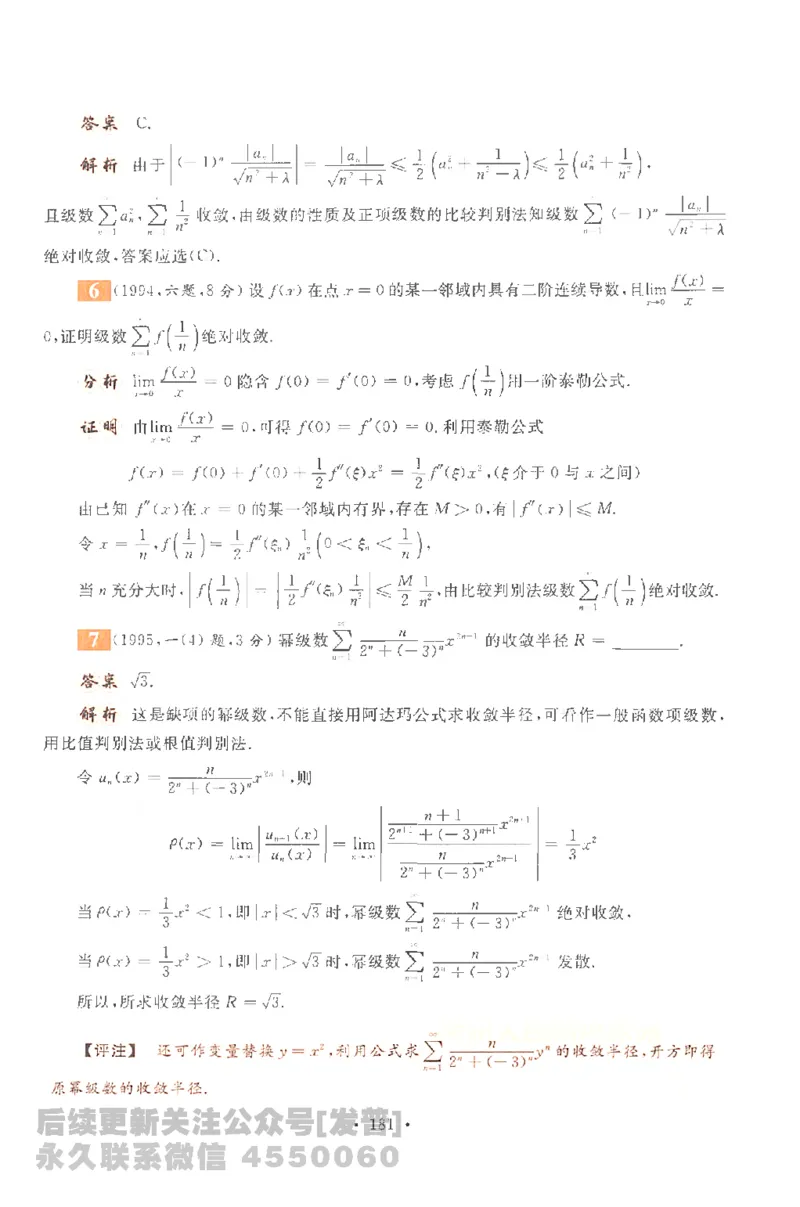 答案 C.
解析 由于|(-1)ⁿ |aₙ|/√(n²+λ)| = |aₙ|/√(n²+λ) ≤ 1/2(aₙ² + 1/(n²-λ)) ≤ 1/2(aₙ² + 1/n²),
且级数∑(n=1)aₙ²,∑(n=1) 1/n² 收敛,由级数的性质及正项级数的比较判别法知级数∑(n=1)(-1)ⁿ |aₙ|/√(n²+λ)
绝对收敛,答案应选(C).
6 (1994,六题,8分)设f(x)在点x=0的某一邻域内具有二阶连续导数,且lim(x→0) f(x)/x =
0,证明级数∑(n=1) f(1/n)绝对收敛.
分析 lim(x→0) f(x)/x = 0隐含f(0) = f′(0) = 0,考虑f(1/n)用一阶泰勒公式.
证明 由lim(x→0) f(x)/x = 0,可得f(0) = f′(0) = 0.利用泰勒公式
f(x) = f(0) + f′(0) + 1/2 f″(ξ)x² = 1/2 f″(ξ)x²,(ξ介于0与x之间)
由已知f″(x)在x=0的某一邻域内有界,存在M>0,有|f″(x)|≤M.
令x = 1/n,f(1/n) = 1/2 f″(ξₙ) 1/n² (0<ξₙ<1/n),
当n充分大时,|f(1/n)| = |1/2 f″(ξₙ) 1/n²| ≤ M/2 1/n²,由比较判别法级数∑(n=1) f(1/n)绝对收敛.
7 (1995,一(4)题,3分)幂级数∑(n=1)^∞ n/(2ⁿ+(-3)ⁿ) x²ⁿ⁻¹ 的收敛半径R = ______.
答案 √3.
解析 这是缺项的幂级数,不能直接用阿达玛公式求收敛半径,可看作一般函数项级数,
用比值判别法或根值判别法.
令uₙ(x) = n/(2ⁿ+(-3)ⁿ) x²ⁿ⁻¹,则
ρ(x) = lim(n→∞)|uₙ₊₁(x)/uₙ(x)| = lim(n→∞)|((n+1)/(2ⁿ⁺¹+(-3)ⁿ⁺¹) x²ⁿ⁺¹)/(n/(2ⁿ+(-3)ⁿ) x²ⁿ⁻¹)| = 1/3 x²
当ρ(x) = 1/3 x² < 1,即|x|<√3时,幂级数∑(n=1)^∞ n/(2ⁿ+(-3)ⁿ) x²ⁿ⁻¹绝对收敛,
当ρ(x) = 1/3 x² > 1,即|x|>√3时,幂级数∑(n=1)^∞ n/(2ⁿ+(-3)ⁿ) x²ⁿ⁻¹发散.
所以,所求收敛半径R = √3.
【评注】 还可作变量替换y = x²,利用公式求∑(n=1)^∞ n/(2ⁿ+(-3)ⁿ) yⁿ的收敛半径,开方即得
原幂级数的收敛半径.
· 181 ·
后续更新关注公众号[发普]
永久联系微信 4550060